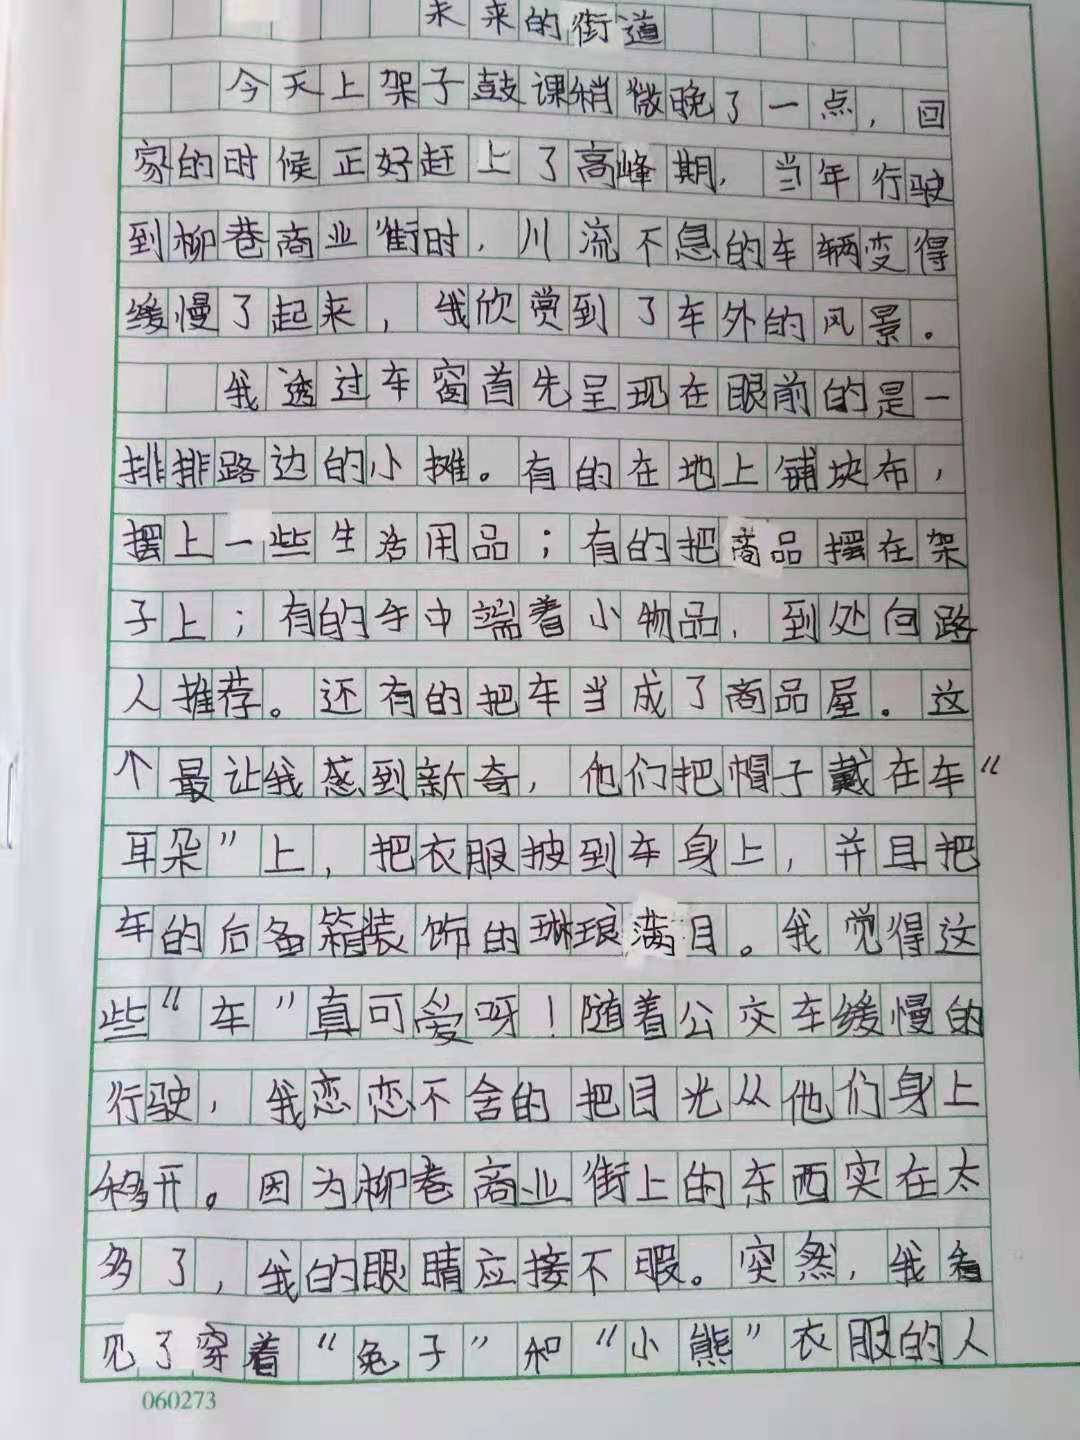 未来的街道
今天上架子鼓课稍微晚了一点，回
家的时候正好赶上了高峰期，当车行驶
到柳巷商业街时，川流不息的车辆变得
缓慢了起来，我欣赏到了车外的风景。
我透过车窗首先呈现在眼前的是一
排排路边的小摊。有的在地上铺块布，
摆上一些生活用品；有的把商品摆在架
子上；有的手中端着小物品，到处向路
人推荐。还有的把车当成了商品屋。这
个最让我感到新奇，他们把帽子戴在车“
耳朵”上，把衣服披到车身上，并且把
车的后备箱装饰的琳琅满目。我觉得这
些“车”真可爱呀！随着公交车缓慢的
行驶，我恋恋不舍的把目光从他们身上
移开。因为柳巷商业街上的东西实在太
多了，我的眼睛应接不暇。突然，我看
见了穿着“兔子”和“小熊”衣服的人
060273